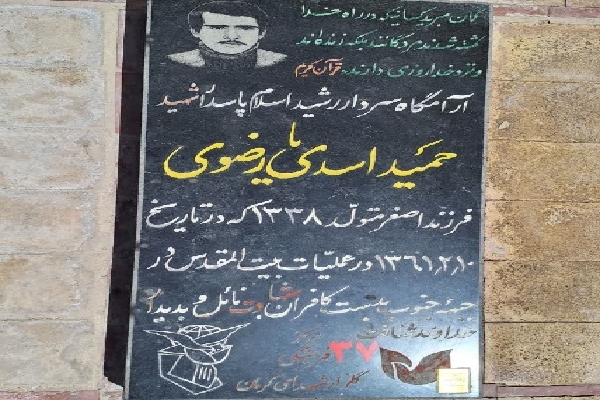 گمان مبرید کسانیکه در راه خدا
کشته شدند مردگانند بلکه زنده اند
و نزد خدا روزی دارند. قرآن کریم
آرامگاه سردار رشید اسلام پاسدار شهید
حمید اسدی رضوی
فرزند اصغر متولد ۱۳۳۸ که در تاریخ
۱۳۶۱,۲,۱۰ در عملیات بیت المقدس در
جبهه جنوب بدست کافران شهادت نائل و بدیدار
خداوند شتافت
۳۷
گلزار شهدای کرمان